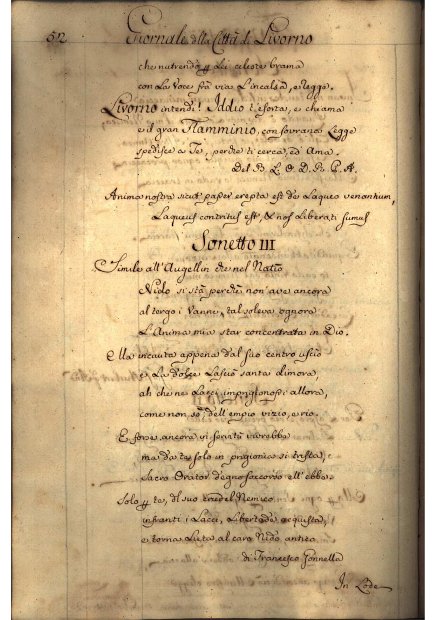 52 Giornale della Città di Livorno
che nutrendo p Lei celeste brama
con La Voce frà via L'incalsa, e legge.
Livorno intendi! Iddio t'esorta, e chiama
e il gran Flamminio, con sovrana Legge
spedisce a Te, perche ti cerca, ed Ama.
Anima nostra sicut paser erepta est de Laqueo venantium,
Laqueus contritus est, & nos Liberati sumus
Sonetto III
Simile all'Augellin che nel Natio
Nido si stà perche non'ave ancora
al tergo i Vanne, tal soleva ognora
L'Anima mia star concentrata in Dio.
Ella incauta appena dal suo centro uscio
e La dolce Lasciò santa dimora,
ah che ne Lacci impriglionossi allora,
come non so, dell'empio vizio, e rio.
E forse ancora vi
ma da te solo in prigionia si trista,
Sacro Orator degno soccorso ell'ebbe
Solo p te, del suo Nemico
infranti i Lacci, Libertade acquista,
e torna Lieta al caro Nido antico
di Francesco Jonnella
In Lode